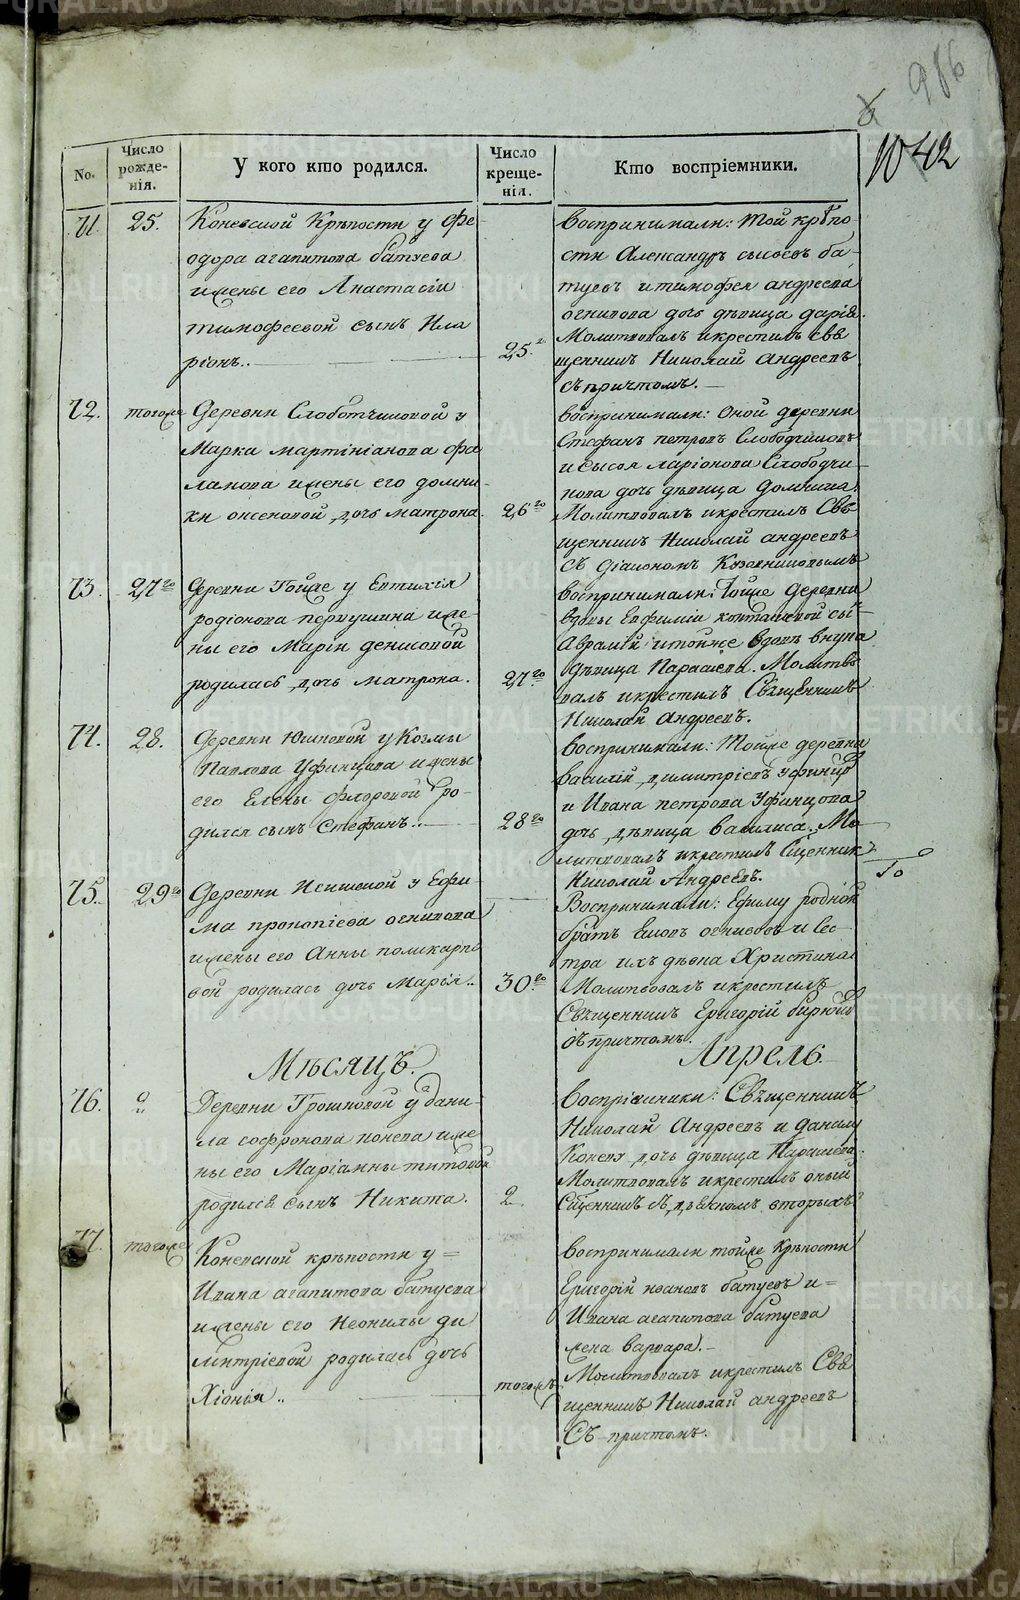 986
1042
No.
Число рожде-нія.
У кого кто родился.
Число креще-нія.
Кто воспріемники.
71. 25.
Коневской Крѣпости у Фе
одора агапитова батуева
ижены его Анастасіи
тимофеевой сынъ Ила
ріонъ..
25.
Воспринимали: той крѣпо
сти Александръ сысоевъ ба-
туевъ итимофея андреева
огнивова дочь дѣвица дарія.
Молитвовалъ икрестилъ свя
щенникъ Николай Андреевъ
съ причтомъ.
72. тогоже
Деревни Слоботчиковой у
Марка мартініанова фа
ламова ижены его домни-
ки оксеновой дочь матрона
26го
воспринимали: оной деревни
Стефанъ петровъ Слободчиковъ
и сысоя ларіонова Слободчи-
кова дочь дѣвица домника.
Молитвовалъ икрестилъ Свя
щенникъ Николай андреевъ
съ діакономъ
73. 27го
Деревни Тойже у Евтихія
родіонова первушина иже-
ны его Маріи денисовой
родилась дочь матрона.
27го
воспринимали: Тойже деревни
вдовы Евфиміи сынъ
Аврамій итойже вдовы внука
дѣвица Параскева. Молитво
валъ икрестилъ Священникъ
Николай Андреевъ.
74. 28.
Деревни Юшковой у Козмы
Павлова Уфинцова ижены
его Елены флоровой ро-
дился сынъ Стефанъ..
28го
воспринимали: Тойже деревни
василій димитріевъ уфинцовъ
и Ивана петрова Уфинцова
дочь дѣвица василиса. Мо
литвовалъ икрестилъ Сщенникъ
Николай Андреевъ.
75. 29го
Деревни у Ефи-
ма прокопіева огнивова
ижены его Анны поликарпо
вой родилась дочь Марія..
30го
Воспринимали: Ефиму родной
братъ огнивовъ и сес-
тра ихъ дѣвка Христина
Молитвовалъ икрестилъ
Священникъ Григорій
съ причтомъ.
Мѣсяцъ. Апрель
76. 2
Деревни Грошковой у дани-
ла софронова конева иже
ны его Маріамны титовой
родился сынъ Никита.
2
Воспріемники: Священникъ
Николай Андреевъ и данилы
Конева дочь дѣвица Параскева
Молитвовалъ икрестилъ оный
Сщенникъ вторыхъ
77. тогоже
Коневской крѣпости у=
Ивана агапитова батуева
ижены его Неонилы ди
митріевой родилась дочь
Хіонія..
тогожъ
воспринимали тойже Крѣпости
Григорій батуевъ и=
Ивана агапитова батуева
жена варвара.
Молитвовалъ икрестилъ Свя
щенникъ Николай андреевъ
Съ причтомъ.
METRIKI.GASO-URAL.RU